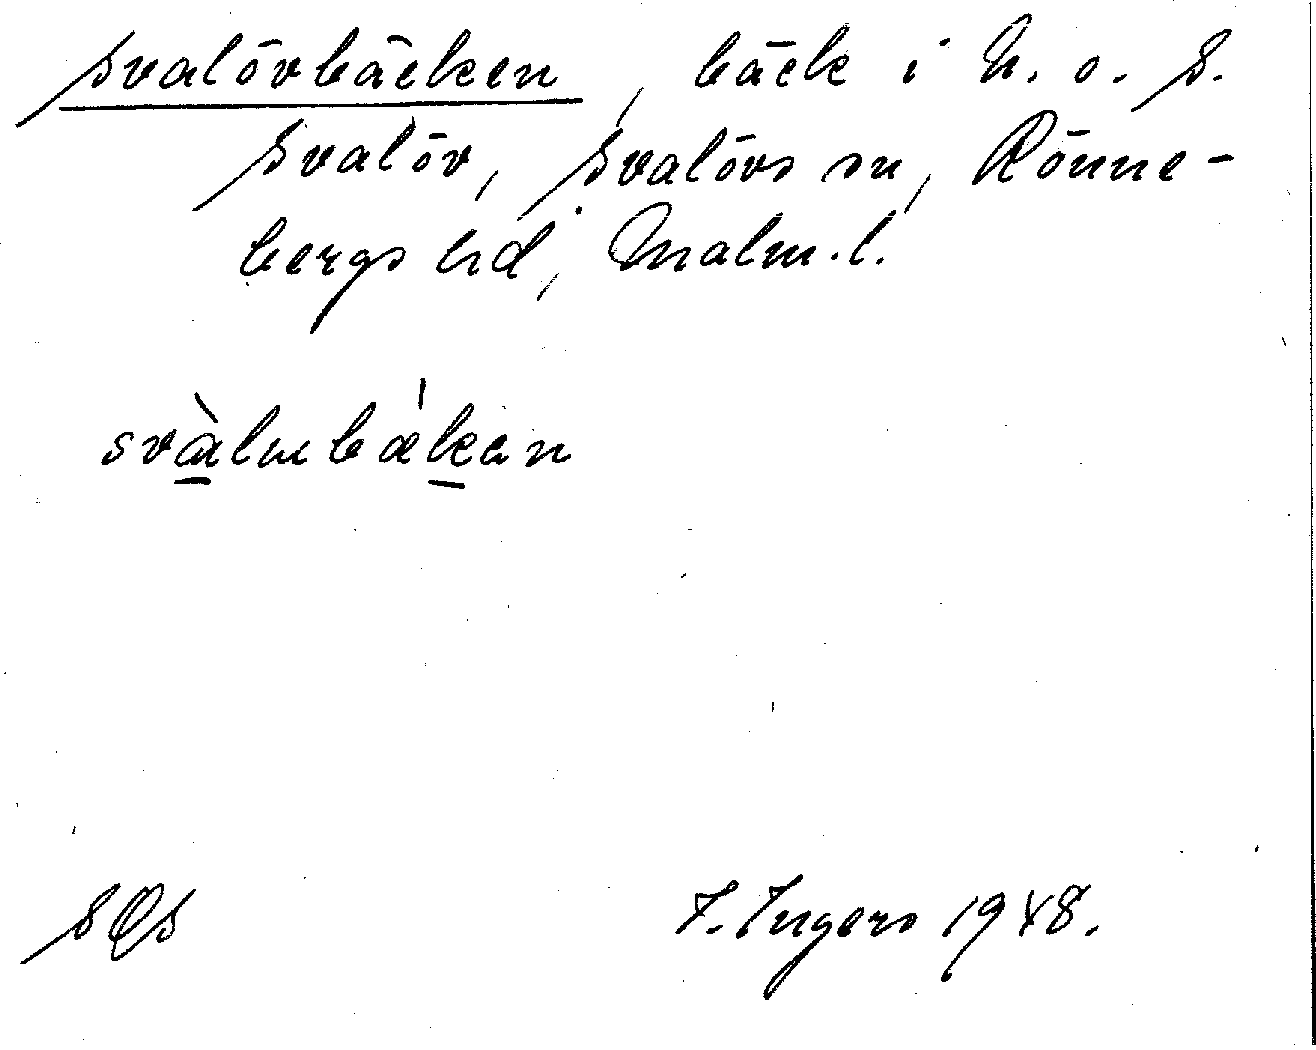 Svalövbäcken, bäck i N. o. S.
Svalöv, Svalövs sn, Rönne-
bergs hd, Malm. l.
svàlmbǽkan
SOS
I. Ingers 1948.